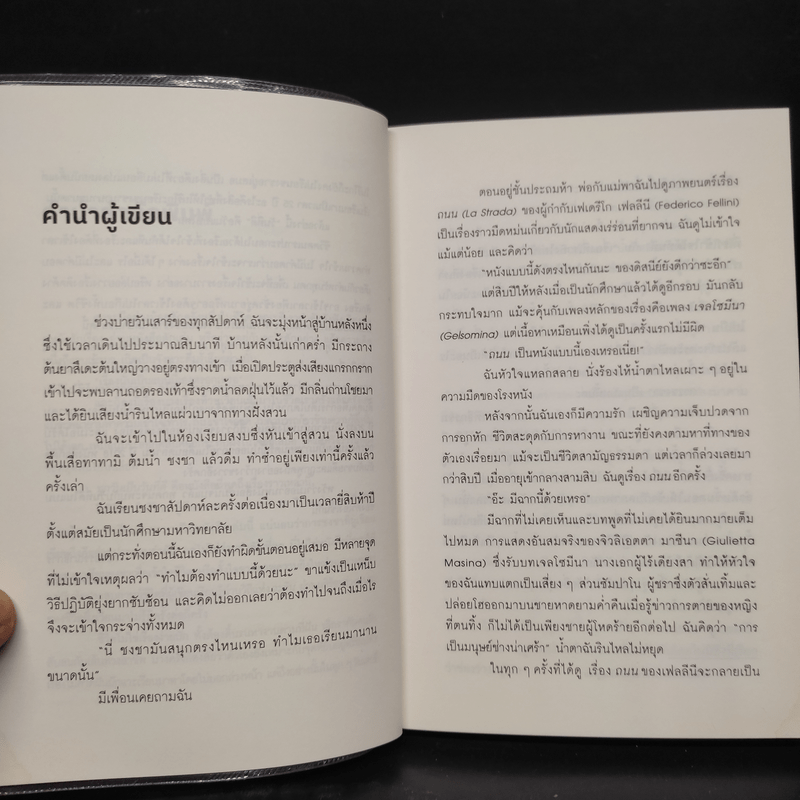 คำนำผู้เขียน
ช่วงบ่ายวันเสาร์ของทุกสัปดาห์ ฉันจะมุ่งหน้าสู่บ้านหลังหนึ่ง
ซึ่งใช้เวลาเดินไปประมาณสิบนาที บ้านหลังนั้นเก่าคร่ำ มีกระถาง
ต้นยาสึเดะต้นใหญ่วางอยู่ตรงทางเข้า เมื่อเปิดประตูส่งเสียงแกรกกราก
เข้าไปจะพบลานถอดรองเท้าซึ่งราดน้ำลดฝุ่นไว้แล้ว มีกลิ่นถ่านโชยมา
และได้ยินเสียงน้ำรินไหลแผ่วเบาจากทางฝั่งสวน
ฉันจะเข้าไปในห้องเงียบสงบซึ่งหันเข้าสู่สวน นั่งลงบน
พื้นเสื่อทาทามิ ต้มน้ำ ชงชา แล้วดื่ม ทำซ้ำอยู่เพียงเท่านี้ครั้งแล้ว
ครั้งเล่า
ฉันเรียนชงชาสัปดาห์ละครั้งต่อเนื่องมาเป็นเวลายี่สิบห้าปี
ตั้งแต่สมัยเป็นนักศึกษามหาวิทยาลัย
แต่กระทั่งตอนนี้ฉันเองก็ยังทำผิดขั้นตอนอยู่เสมอ มีหลายจุด
ที่ไม่เข้าใจเหตุผลว่า “ทำไมต้องทำแบบนี้ด้วยนะ” ขาแข้งเป็นเหน็บ
วิธีปฏิบัติยุ่งยากซับซ้อน และคิดไม่ออกเลยว่าต้องทำไปจนถึงเมื่อไร
จึงจะเข้าใจกระจ่างทั้งหมด
“นี่ ชงชามันสนุกตรงไหนเหรอ ทำไมเธอเรียนมานาน
ขนาดนั้น”
มีเพื่อนเคยถามฉัน
ตอนอยู่ชั้นประถมห้า พ่อกับแม่พาฉันไปดูภาพยนตร์เรื่อง
ถนน (La Strada) ของผู้กำกับเฟเดริโก เฟลลีนี (Federico Fellini)
เป็นเรื่องราวมืดหม่นเกี่ยวกับนักแสดงเร่ร่อนที่ยากจน ฉันดูไม่เข้าใจ
แม้แต่น้อย และคิดว่า
“หนังแบบนี้ดังตรงไหนกันนะ ของดิสนีย์ยังดีกว่าซะอีก”
แต่สิบปีให้หลังเมื่อเป็นนักศึกษาแล้วได้ดูอีกรอบ มันกลับ
กระทบใจมาก แม้จะคุ้นกับเพลงหลักของเรื่องคือเพลง เจลโซมีนา
(Gelsomina) แต่เนื้อหาเหมือนเพิ่งได้ดูเป็นครั้งแรกไม่มีผิด
“ถนน เป็นหนังแบบนี้เองเหรอเนี่ย!”
ฉันหัวใจแหลกสลาย นั่งร้องไห้น้ำตาไหลเผาะ ๆ อยู่ใน
ความมืดของโรงหนัง
หลังจากนั้นฉันเองก็มีความรัก เผชิญความเจ็บปวดจาก
การอกหัก ชีวิตสะดุดกับการหางาน ขณะที่ยังคงตามหาที่ทางของ
ตัวเองเรื่อยมา แม้จะเป็นชีวิตสามัญธรรมดา แต่เวลาก็ล่วงเลยมา
กว่าสิบปี เมื่ออายุเข้ากลางสามสิบ ฉันดูเรื่อง ถนน อีกครั้ง
“อ๊ะ มีฉากนี้ด้วยเหรอ”
มีฉากที่ไม่เคยเห็นและบทพูดที่ไม่เคยได้ยินมากมายเต็ม
ไปหมด การแสดงอันสมจริงของจิวลิเอตตา มาซีนา (Giulietta
Masina) ซึ่งรับบทเจลโซมีนา นางเอกผู้ไร้เดียงสา ทำให้หัวใจ
ของฉันแทบแตกเป็นเสี่ยง ๆ ส่วนซัมปาโน ผู้ชราซึ่งตัวสั่นเทิ้มและ
ปล่อยโฮออกมาบนชายหาดยามค่ำคืนเมื่อรู้ข่าวการตายของหญิง
ที่ตนทิ้ง ก็ไม่ได้เป็นเพียงชายผู้โหดร้ายอีกต่อไป ฉันคิดว่า “การ
เป็นมนุษย์ช่างน่าเศร้า” น้ำตาฉันรินไหลไม่หยุด
ในทุก ๆ ครั้งที่ได้ดู เรื่อง ถนน ของเฟลลีนีจะกลายเป็น